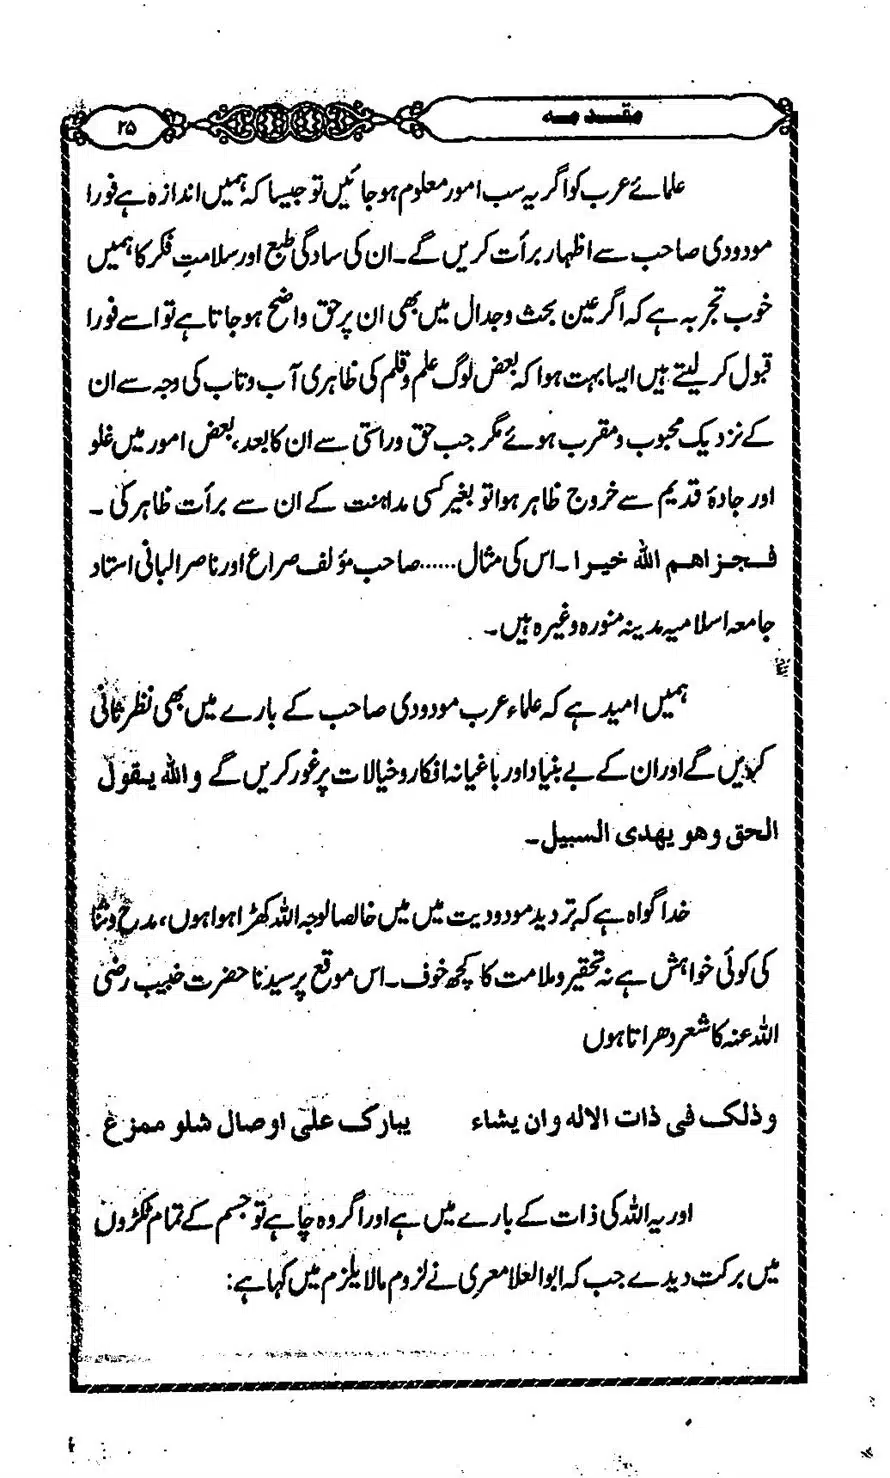 مقدمہ
۲۵
علمائے عرب کو اگر یہ سب امور معلوم ہو جائیں تو جیسا کہ ہمیں اندازہ ہے فورا
مودودی صاحب سے اظہار برأت کریں گے۔ ان کی سادگی طبع اور سلامتِ فکر کا ہمیں
خوب تجربہ ہے کہ اگر عین بحث وجدال میں بھی ان پر حق واضح ہو جاتا ہے تو اسے فورا
قبول کر لیتے ہیں ایسا بہت ہوا کہ بعض لوگ علم وقلم کی ظاہری آب وتاب کی وجہ سے ان
کے نزدیک محبوب ومقرب ہوئے مگر جب حق وراستی سے ان کا بعد، بعض امور میں غلو
اور جادۂ قدیم سے خروج ظاہر ہوا تو بغیر کسی مداہنت کے ان سے برأت ظاہر کی ۔
فجزاهم الله خيرا ۔ اس کی مثال ...... صاحب مؤلف صراع اور ناصر البانی استاد
جامعہ اسلامیہ مدینہ منورہ وغیرہ ہیں۔
ہمیں امید ہے کہ علماء عرب مودودی صاحب کے بارے میں بھی نظر ثانی
کریں گے اور ان کے بے بنیاد اور باغیانہ افکار وخیالات پر غور کریں گے والله يقول
الحق وهو يهدى السبيل۔
خدا گواہ ہے کہ تردید مودودیت میں میں خالصا لوجہ اللہ کھڑا ہوا ہوں، مدح وثنا
کی کوئی خواہش ہے نہ تحقیر وملامت کا کچھ خوف۔ اس موقع پر سیدنا حضرت خبیب رضی
اللہ عنہ کا شعر دھراتا ہوں
وذلك في ذات الاله وان يشاء يبارك على اوصال شلو ممزع
اور یہ اللہ کی ذات کے بارے میں ہے اور اگر وہ چاہے تو جسم کے تمام ٹکڑوں
میں برکت دیدے جب کہ ابو العلا معری نے لزوم مالا یلزم میں کہا ہے: